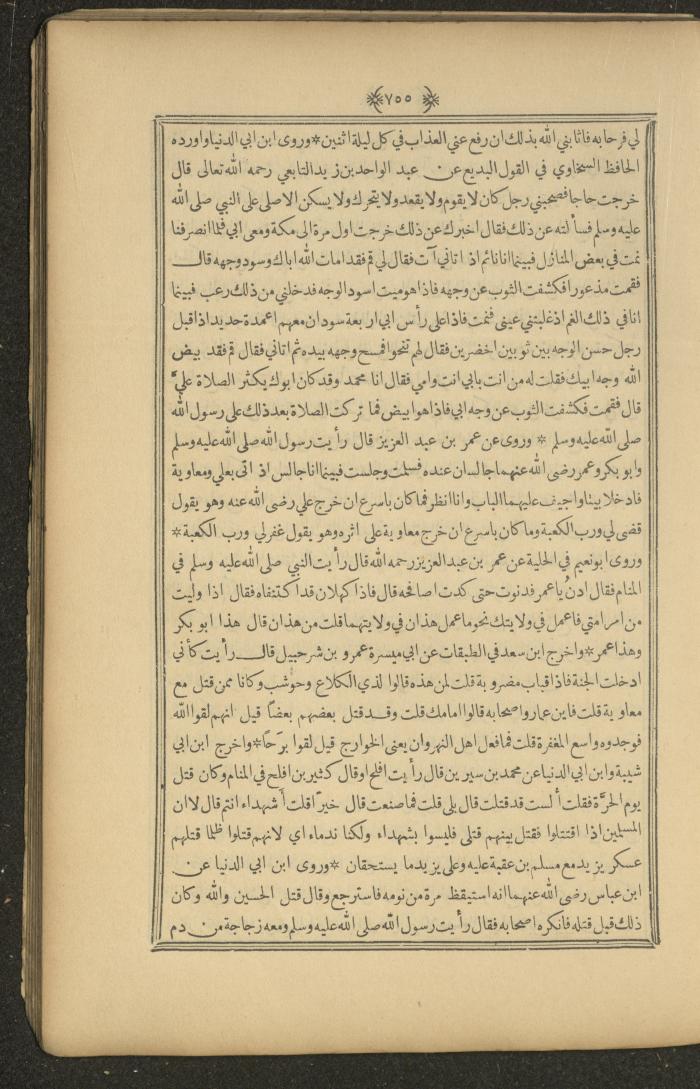 ﴿٧٥٥﴾
لي فرحا به فاثابني الله بذلك ان رفع عني العذاب في كل ليلة اثنين * وروى ابن ابي الدنيا واورده
الحافظ السخاوي في القول البديع عن عبد الواحد بن زيد التابعي رحمه الله تعالى قال
خرجت حاجا فصحبني رجل كان لا يقوم ولا يقعد ولا يتحرك ولا يسكن الا صلى على النبي صلى الله
عليه وسلم فسألته عن ذلك فقال اخبرك عن ذلك خرجت اول مرة الى مكة ومعى ابي فلما انصرفنا
نمت في بعض المنازل فبينما انا نائم اذ اتاني آت فقال لي قم فقد امات الله اباك وسود وجهه قال
فقمت مذعورا فكشفت الثوب عن وجهه فاذا هو ميت اسود الوجه فدخلني من ذلك رعب فبينما
انا في ذلك الغم اذ غلبتني عينى فنمت فاذا على رأس ابي اربعة سودان معهم اعمدة حديد اذ اقبل
رجل حسن الوجه بين ثوبين اخضرين فقال لهم تنحوا فمسح وجهه بيده ثم اتاني فقال قم فقد بيض
الله وجه ابيك فقلت له من انت بابي انت وامي فقال انا محمد وقد كان ابوك يكثر الصلاة عليّ
قال فقمت فكشفت الثوب عن وجه ابي فاذا هو ابيض فما تركت الصلاة بعد ذلك على رسول الله
صلى الله عليه وسلم * وروى عن عمر بن عبد العزيز قال رأيت رسول الله صلى الله عليه وسلم
وابو بكر وعمر رضى الله عنهما جالسان عنده فسلمت وجلست فبينما انا جالس اذ اتى بعلي ومعاوية
فادخلا بيتا واجيف عليهما الباب وانا انظر فما كان باسرع ان خرج علي رضى الله عنه وهو يقول
قضى لي ورب الكعبة وما كان باسرع ان خرج معاوية على اثره وهو يقول غفر لي ورب الكعبة *
وروى ابو نعيم في الحلية عن عمر بن عبد العزيز رحمه الله قال رأيت النبي صلى الله عليه وسلم في
المنام فقال ادنُ يا عمر فدنوت حتى كدت اصافحه قال فاذا كهلان قد اكتنفاه فقال اذا وليت
من امر امتي فاعمل في ولايتك نحو ما عمل هذان في ولايتهما قلت من هذان قال هذا ابو بكر
وهذا عمر * واخرج ابن سعد في الطبقات عن ابي ميسرة عمرو بن شرحبيل قال رأيت كأني
ادخلت الجنة فاذا قباب مضروبة قلت لمن هذه قالوا لذي الكلاع وحوشب وكانا ممن قتل مع
معاوية قلت فاين عمار واصحابه قالوا امامك قلت وقد قتل بعضهم بعضًا قيل انهم لقوا الله
فوجدوه واسع المغفرة قلت فما فعل اهل النهروان يعنى الخوارج قيل لقوا برَحًا * واخرج ابن ابي
شيبة وابن ابي الدنيا عن محمد بن سيرين قال رأيت افلح او قال كثير بن افلح في المنام وكان قتل
يوم الحرَّة فقلت ألست قد قتلت قال بلى قلت فما صنعت قال خيرًا قلت أشهداء انتم قال لا ان
المسلمين اذا اقتتلوا فقتل بينهم قتلى فليسوا بشهداء ولكنا ندماء اي لانهم قتلوا ظلما قتلهم
عسكر يزيد مع مسلم بن عقبة عليه وعلى يزيد ما يستحقان * وروى ابن ابي الدنيا عن
ابن عباس رضى الله عنهما انه استيقظ مرة من نومه فاسترجع وقال قتل الحسين والله وكان
ذلك قبل قتله فانكره اصحابه فقال رأيت رسول الله صلى الله عليه وسلم ومعه زجاجة من دم